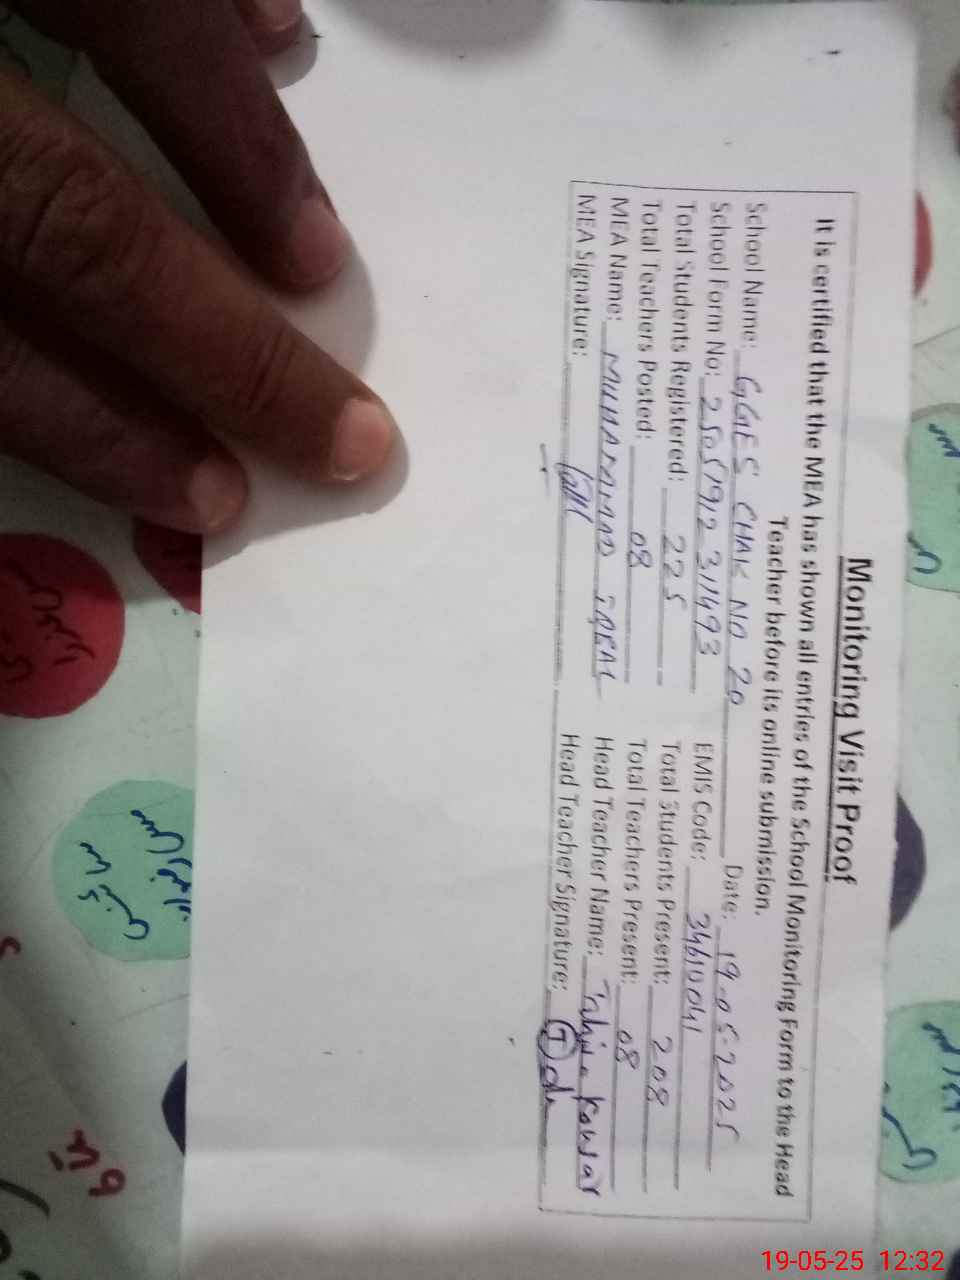 Monitoring Visit Proof
It is certified that the MEA has shown all entries of the School Monitoring Form to the Head
Teacher before its online submission.
School Name: GGES CHAK NO 20 Date: 19-05-2025
School Form No: 25051912311493 EMIS Code: 34610041
Total Students Registered: 225 Total Students Present: 208
Total Teachers Posted: 08 Total Teachers Present: 08
MEA Name: MUHAMAMAD IQBAL Head Teacher Name: Kausar
MEA Signature: Head Teacher Signature:
19-05-25 12:32